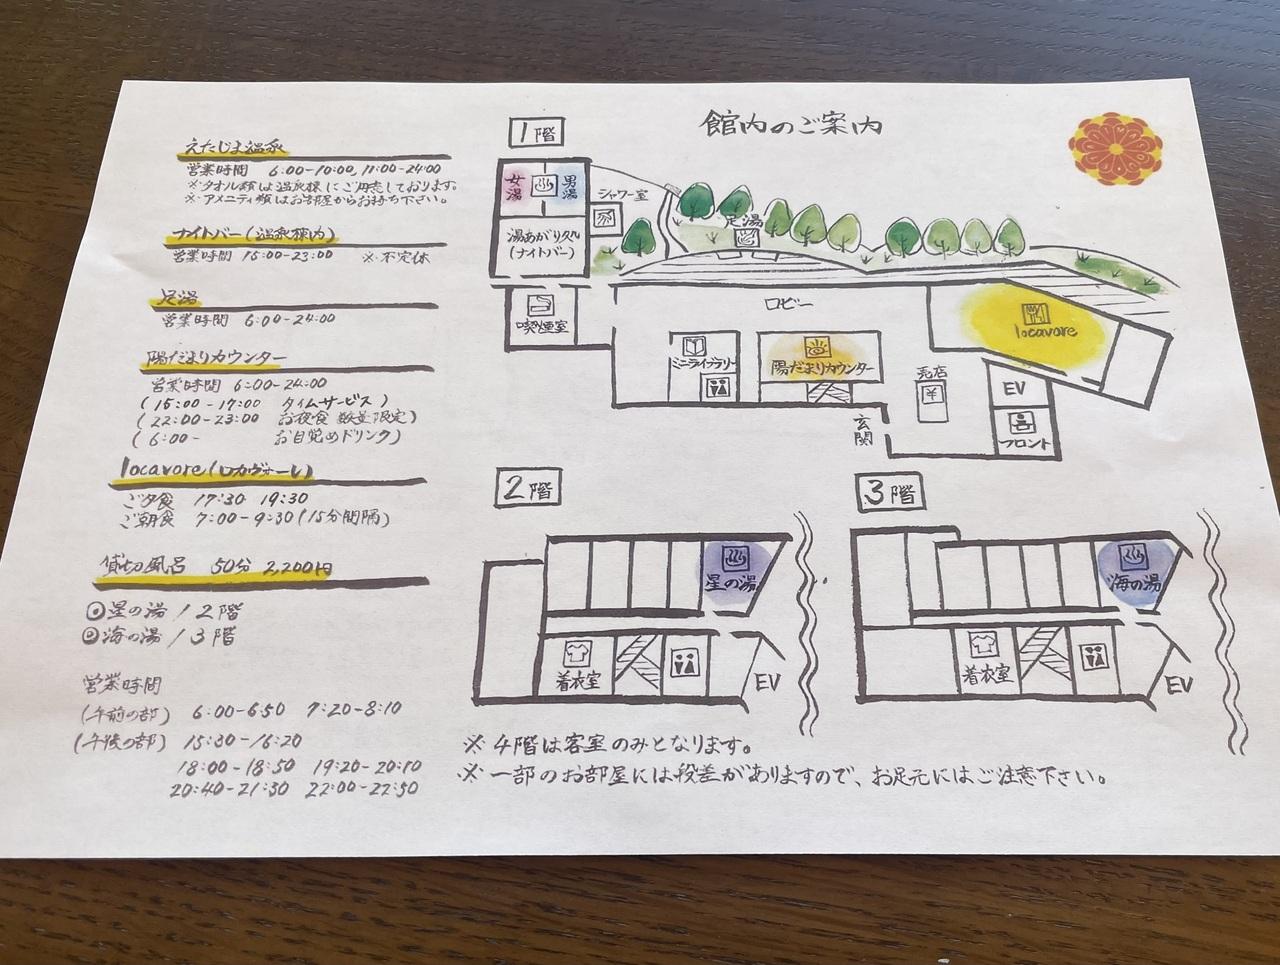 館内のご案内
えたじま温泉
営業時間 6:00-10:00, 11:00-24:00
※タオル類は温泉棟にご用意しております。
※アメニティ類はお部屋からお持ち下さい。
ナイトバー(温泉棟内)
営業時間 15:00-23:00 ※不定休
足湯
営業時間 6:00-24:00
陽だまりカウンター
営業時間 6:00-24:00
(15:00-17:00 タイムサービス)
(22:00-23:00 お夜食 数量限定)
(6:00- お目覚めドリンク)
locavore(ロカヴォーレ)
ご夕食 17:30 19:30
ご朝食 7:00-9:30(15分間隔)
貸切風呂 50分 2,200円
◎星の湯/2階
◎海の湯/3階
営業時間
(午前の部) 6:00-6:50 7:20-8:10
(午後の部) 15:30-16:20
18:00-18:50 19:20-20:10
20:40-21:30 22:00-22:50
1階
女湯
男湯
シャワー室
湯あがり処
(ナイトバー)
足湯
喫煙室
ロビー
locavore
ミニライブラリー
陽だまりカウンター
売店
EV
フロント
玄関
2階
星の湯
着衣室
EV
3階
海の湯
着衣室
EV
※4階は客室のみとなります。
※一部のお部屋には段差がありますので、お足元にはご注意下さい。